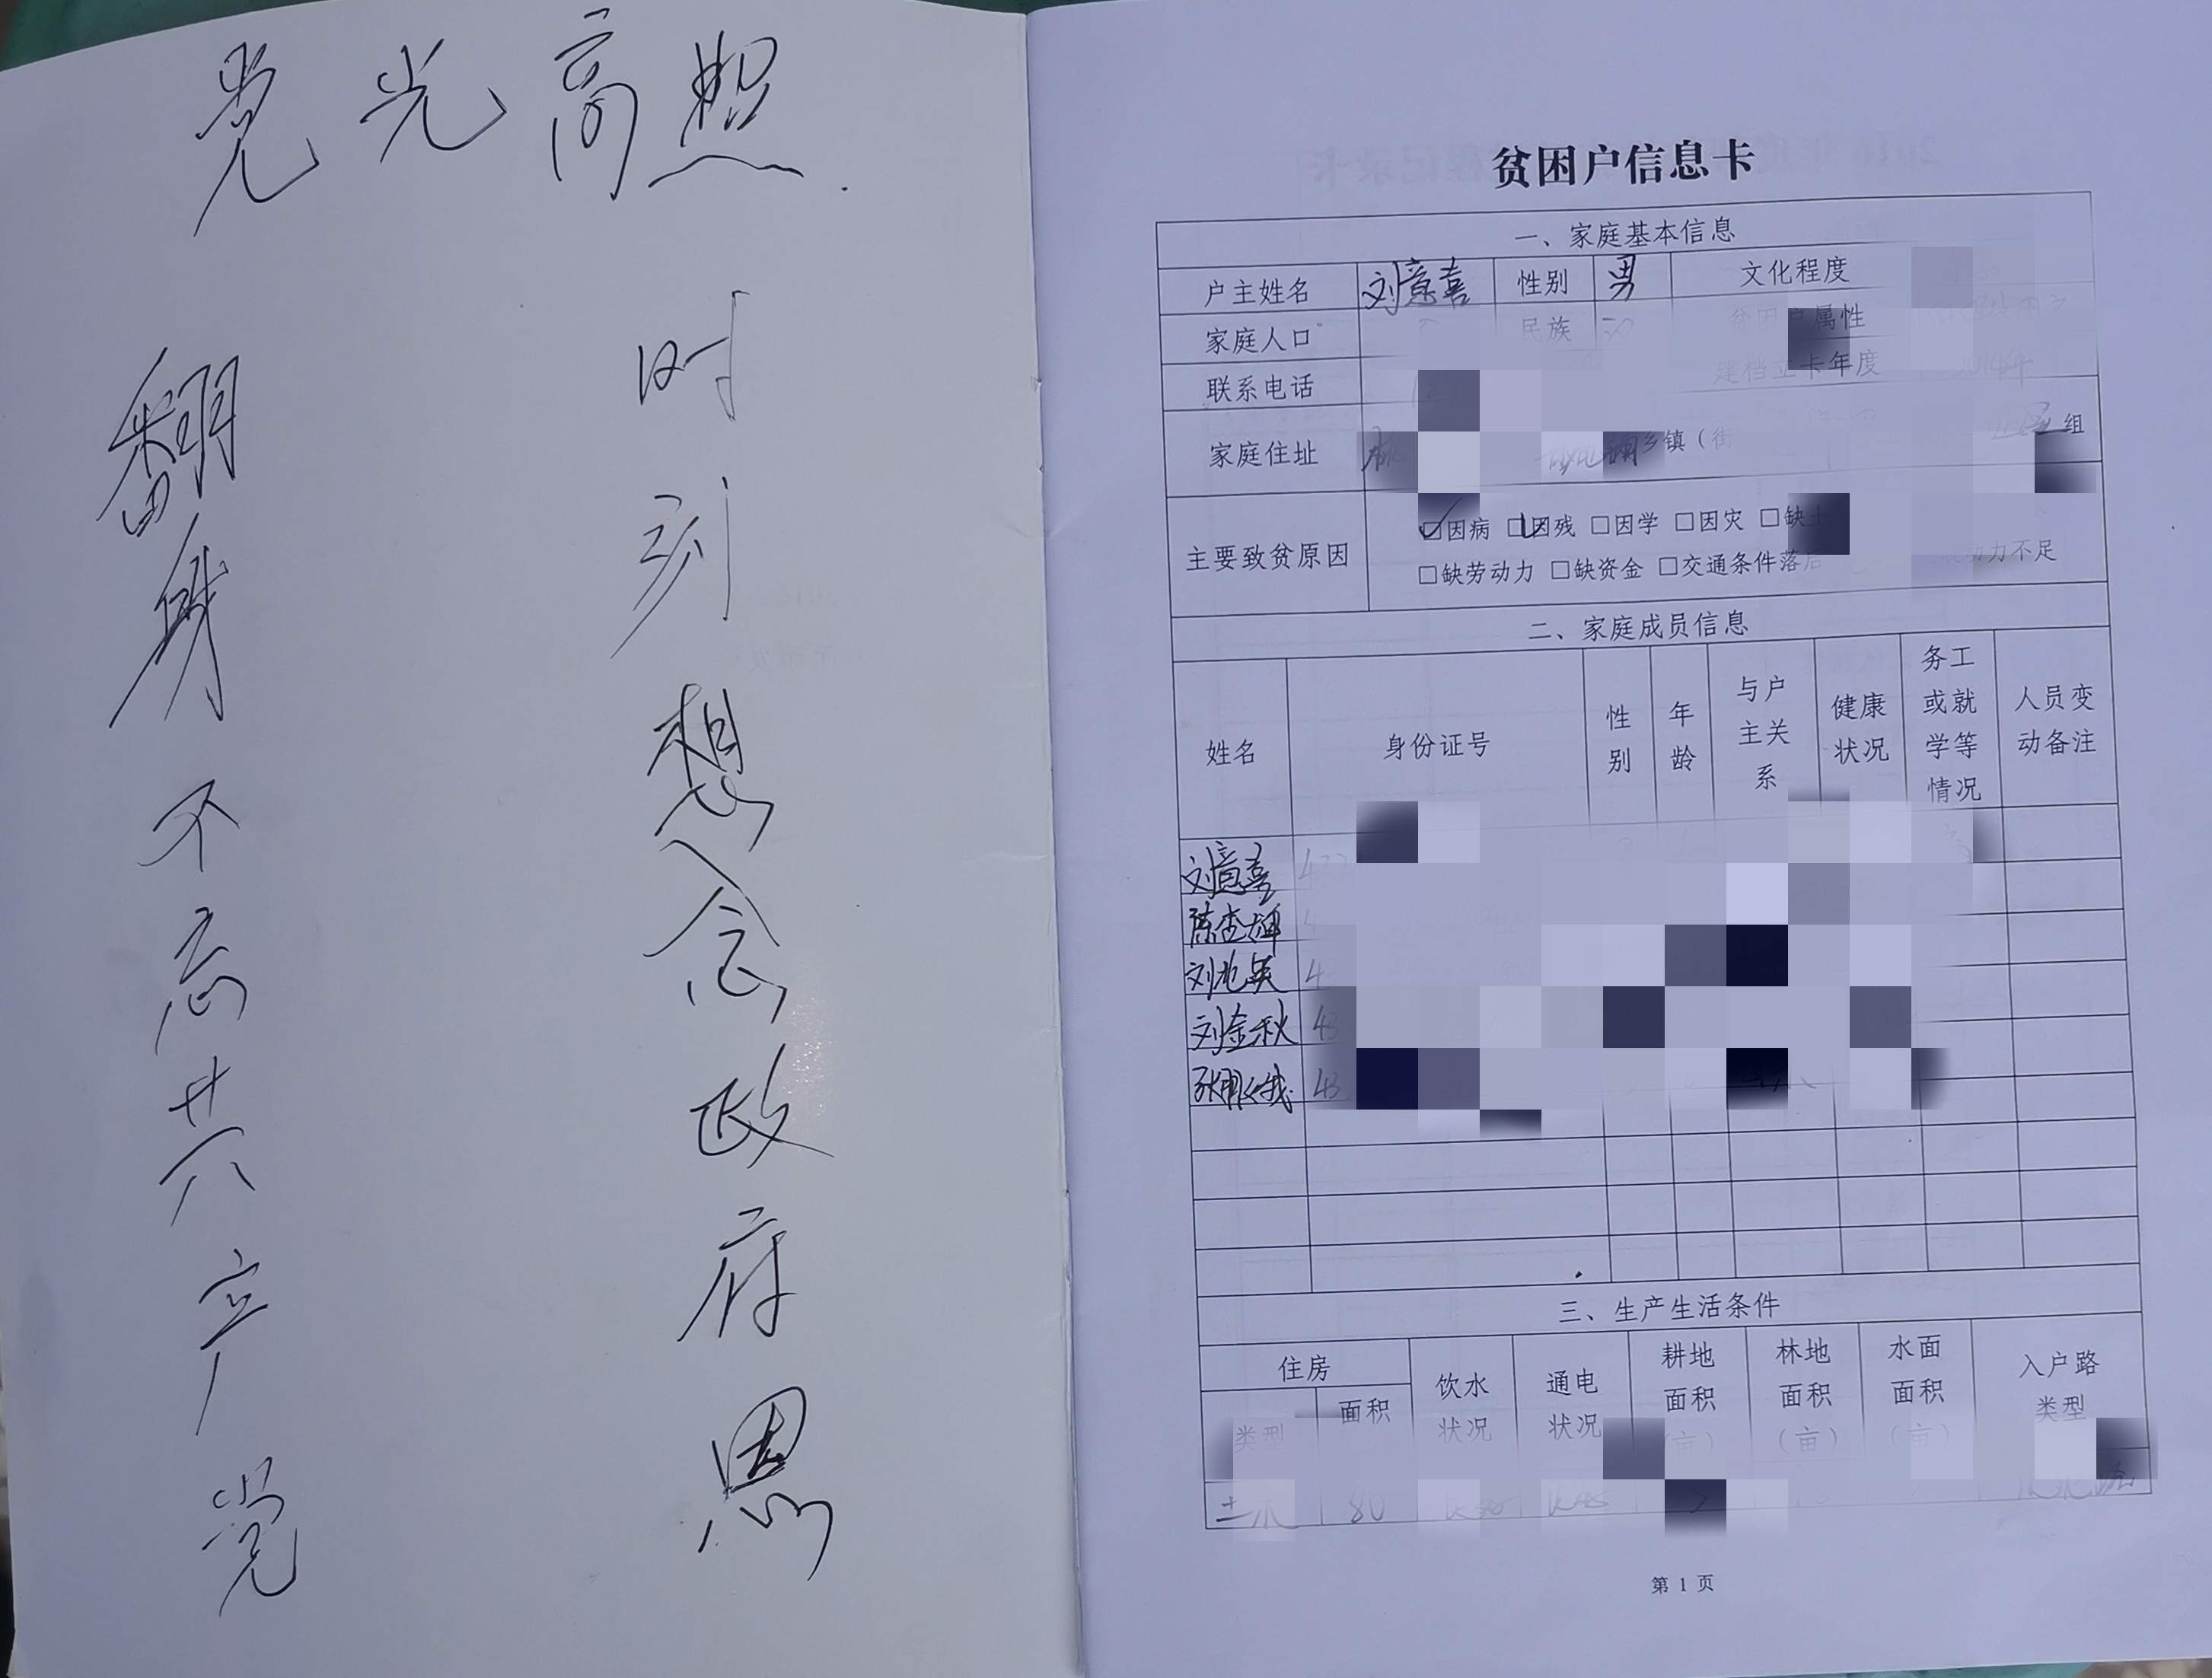 党光高照
翻身不忘共产党
时刻想念政府恩
贫困户信息卡
一、家庭基本信息
户主姓名 刘意喜 性别 男 文化程度
家庭人口 民族 属性
联系电话 建档立卡年度 2014年
家庭住址 乡镇（街 组
主要致贫原因 ☑因病 ☑因残 □因学 □因灾 □缺土
□缺劳动力 □缺资金 □交通条件落后 动力不足
二、家庭成员信息
姓名 身份证号 性别 年龄 与户主关系 健康状况 务工或就学等情况 人员变动备注
刘意喜
陈杏辉
刘
刘金秋 43
43
三、生产生活条件
住房 饮水状况 通电状况 耕地面积（亩） 林地面积（亩） 水面面积（亩） 入户路类型
类型 面积
土木 80
第 1 页